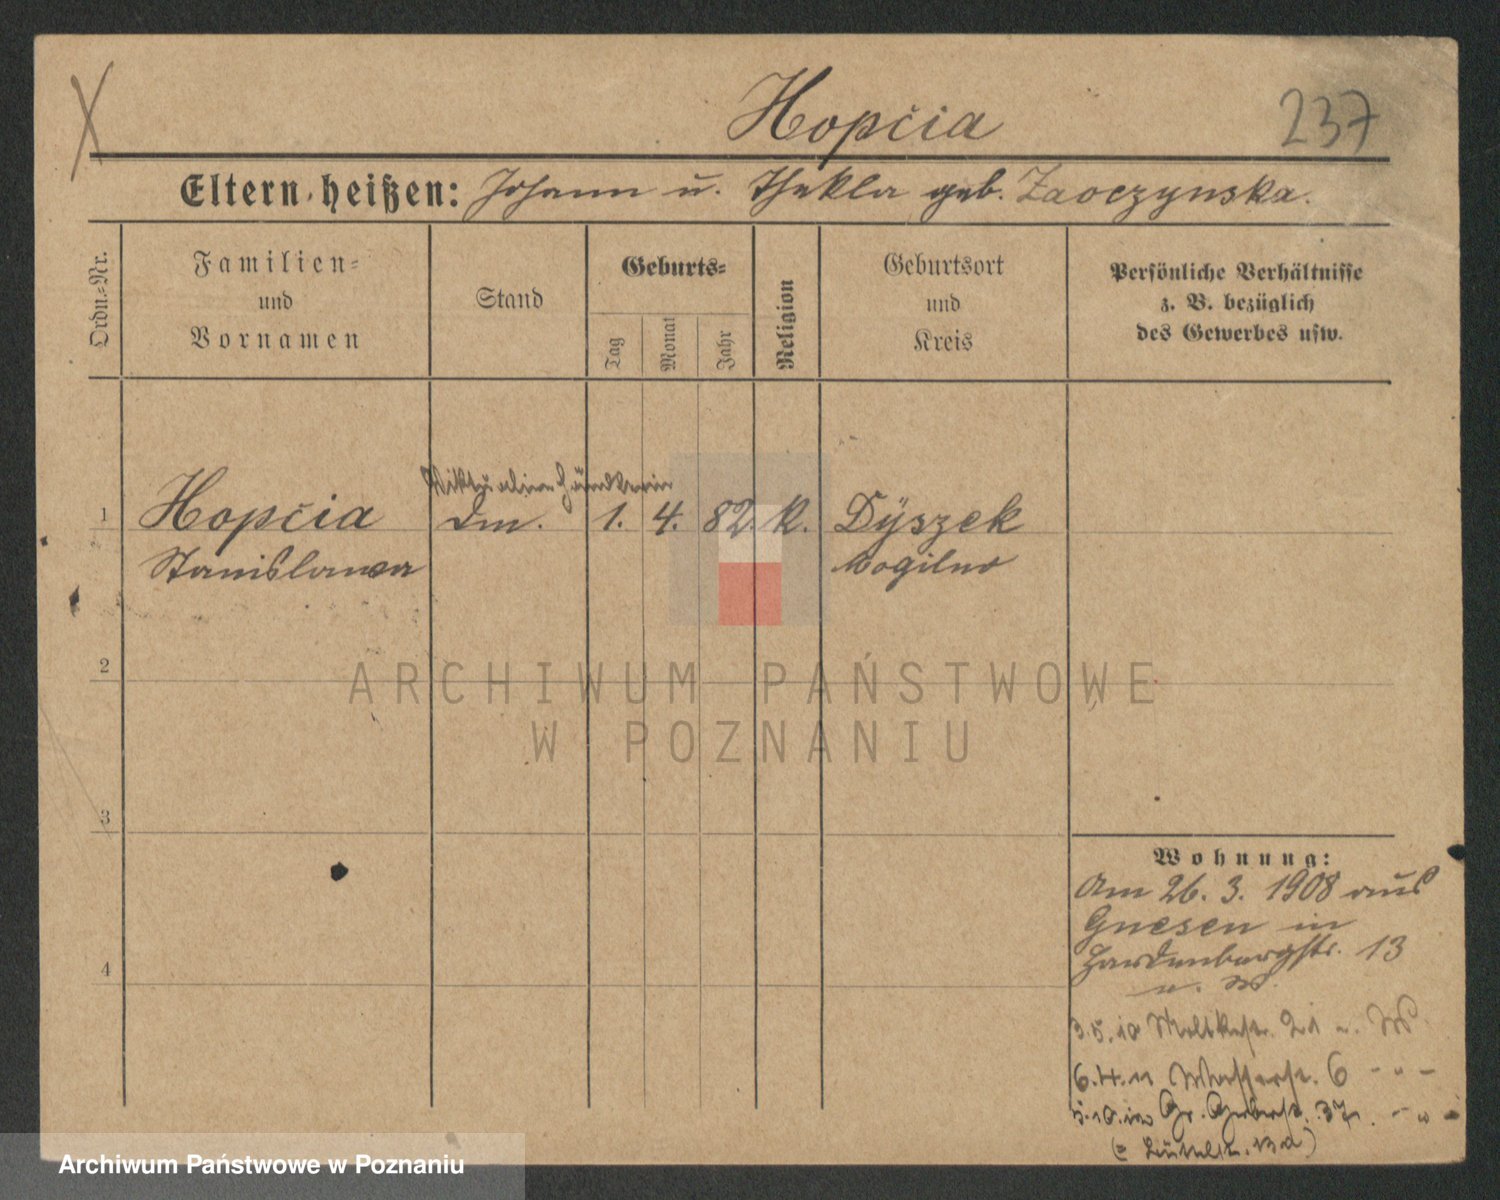 Hopčia
237
Eltern heißen: Johann u. Thekla geb. Zaoczynska.
Ordn.=Nr.
Familien=
und
Vornamen
Stand
Geburts=
Tag
Monat
Jahr
Religion
Geburtsort
und
Kreis
Persönliche Verhältnisse
z. B. bezüglich
des Gewerbes usw.
Viktualienhändlerin
1 Hopčia Dm. 1. 4. 82. K. Dÿszek
Stanislawa Mogilno
2
ARCHIWUM PAŃSTWOWE
W POZNANIU
3
4
Wohnung:
Am 26. 3. 1908 aus
Gnesen in
Hardenbergstr. 13
3.5.10 Moltkestr. 21
6.4.11 Wasserstr. 6
Gr. Gerberstr. 37
Archiwum Państwowe w Poznaniu